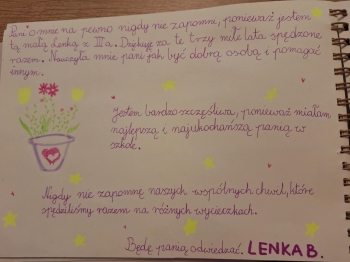 Pani o mnie na pewno nigdy nie zapomni, ponieważ jestem
tą małą Lenką z III a. Dziękuję za te trzy miłe lata spędzone
razem. Nauczyła mnie pani jak być dobrą osobą i pomagać
innym.
Jestem bardzo szczęśliwa, ponieważ miałam
najlepszą i najukochańszą panią w
szkole.
Nigdy nie zapomnę naszych wspólnych chwil, które
spędziliśmy razem na różnych wycieczkach.
Będę panią odwiedzać. LENKA B.